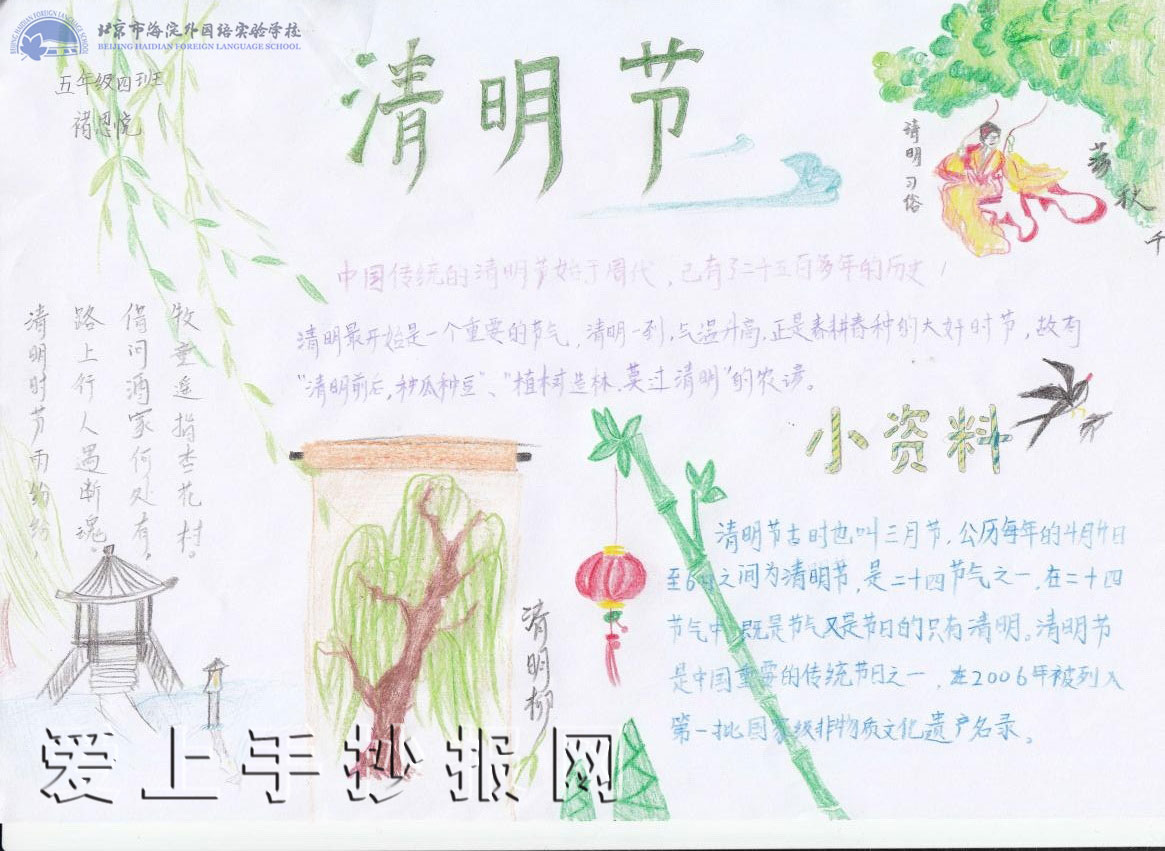 北京市海淀外国语实验学校
BEIJING HAIDIAN FOREIGN LANGUAGE SCHOOL
五年级四班
褚思悦
清明节
清明习俗
荡秋千
中国传统的清明节始于周代，已有了二十五百多年的历史！
清明最开始是一个重要的节气，清明一到，气温升高，正是春耕春种的大好时节，故有
“清明前后，种瓜种豆”、“植树造林，莫过清明”的农谚。
清明时节雨纷纷，
路上行人遇断魂。
借问酒家何处有，
牧童遥指杏花村。
小资料
清明节古时也叫三月节，公历每年的4月4日
至6日之间为清明节，是二十四节气之一，在二十四
节气中，既是节气又是节日的只有清明。清明节
是中国重要的传统节日之一，在2006年被列入
第一批国家级非物质文化遗产名录。
清明柳
爱上手抄报网